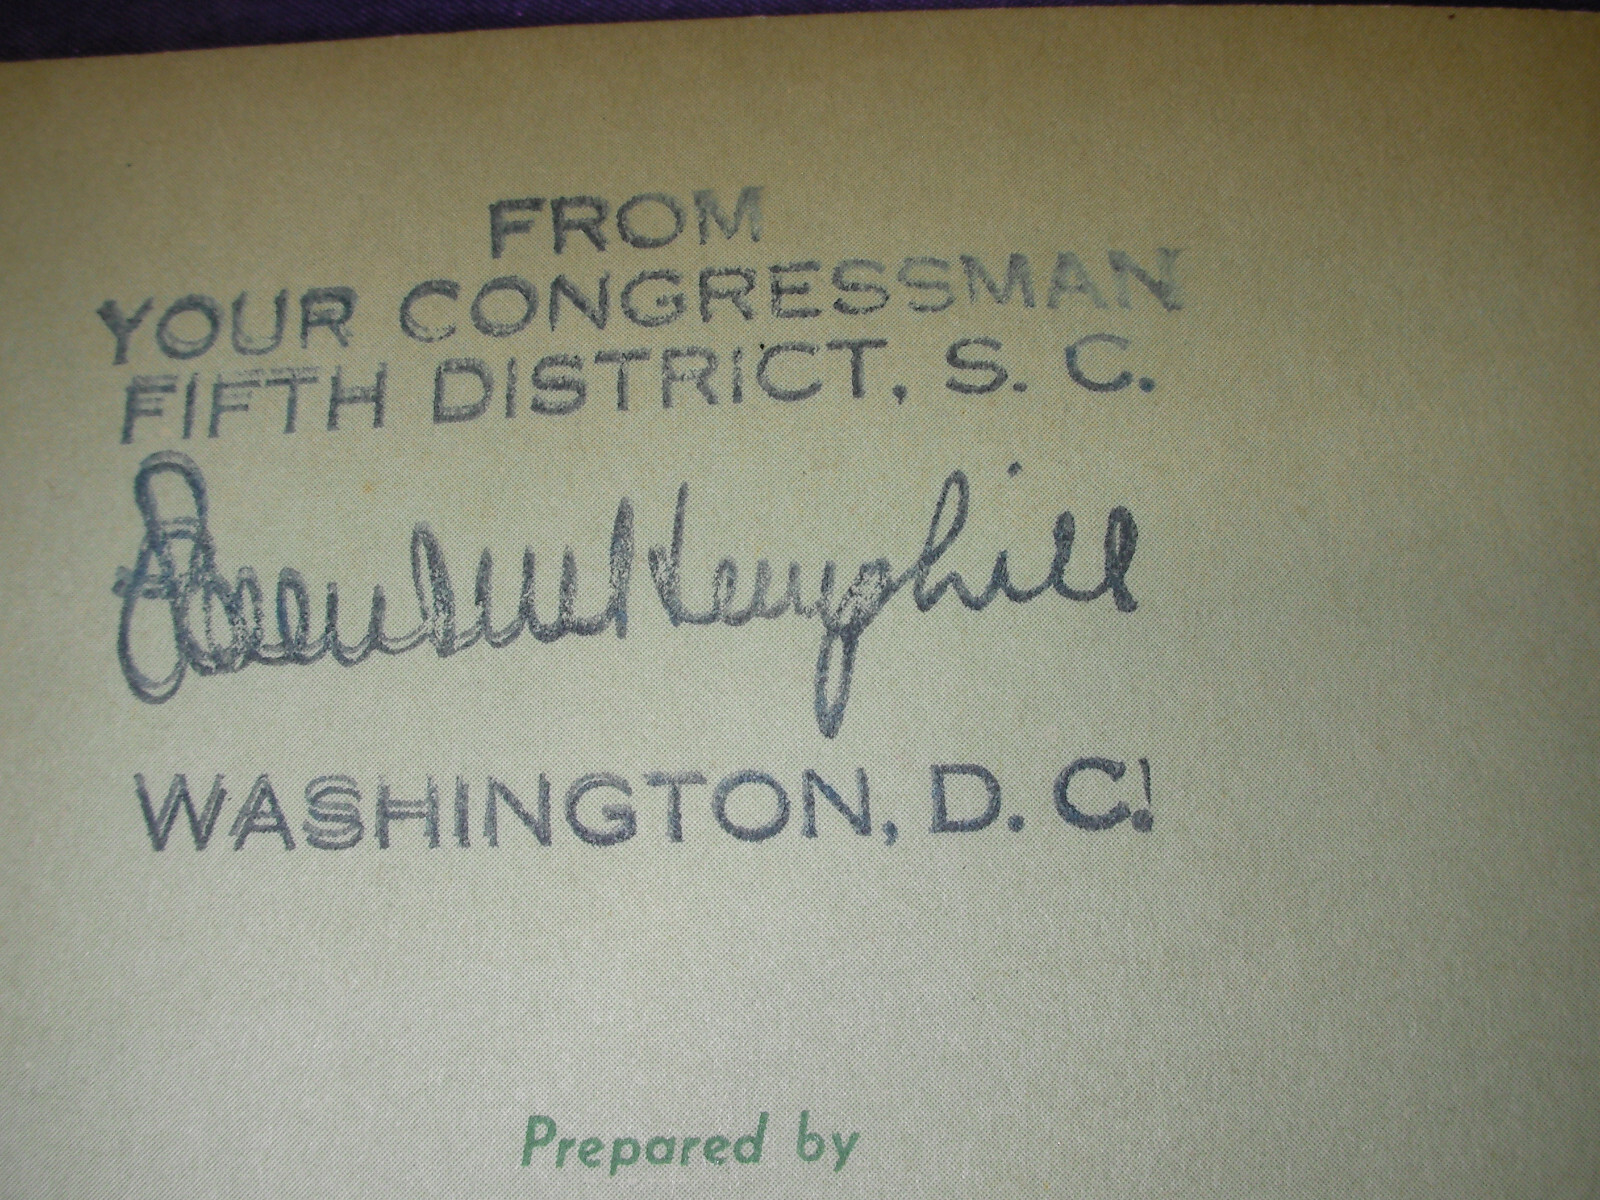 FROM
YOUR CONGRESSMAN
FIFTH DISTRICT, S. C.
Robert W Hemphill
WASHINGTON, D. C.
Prepared by